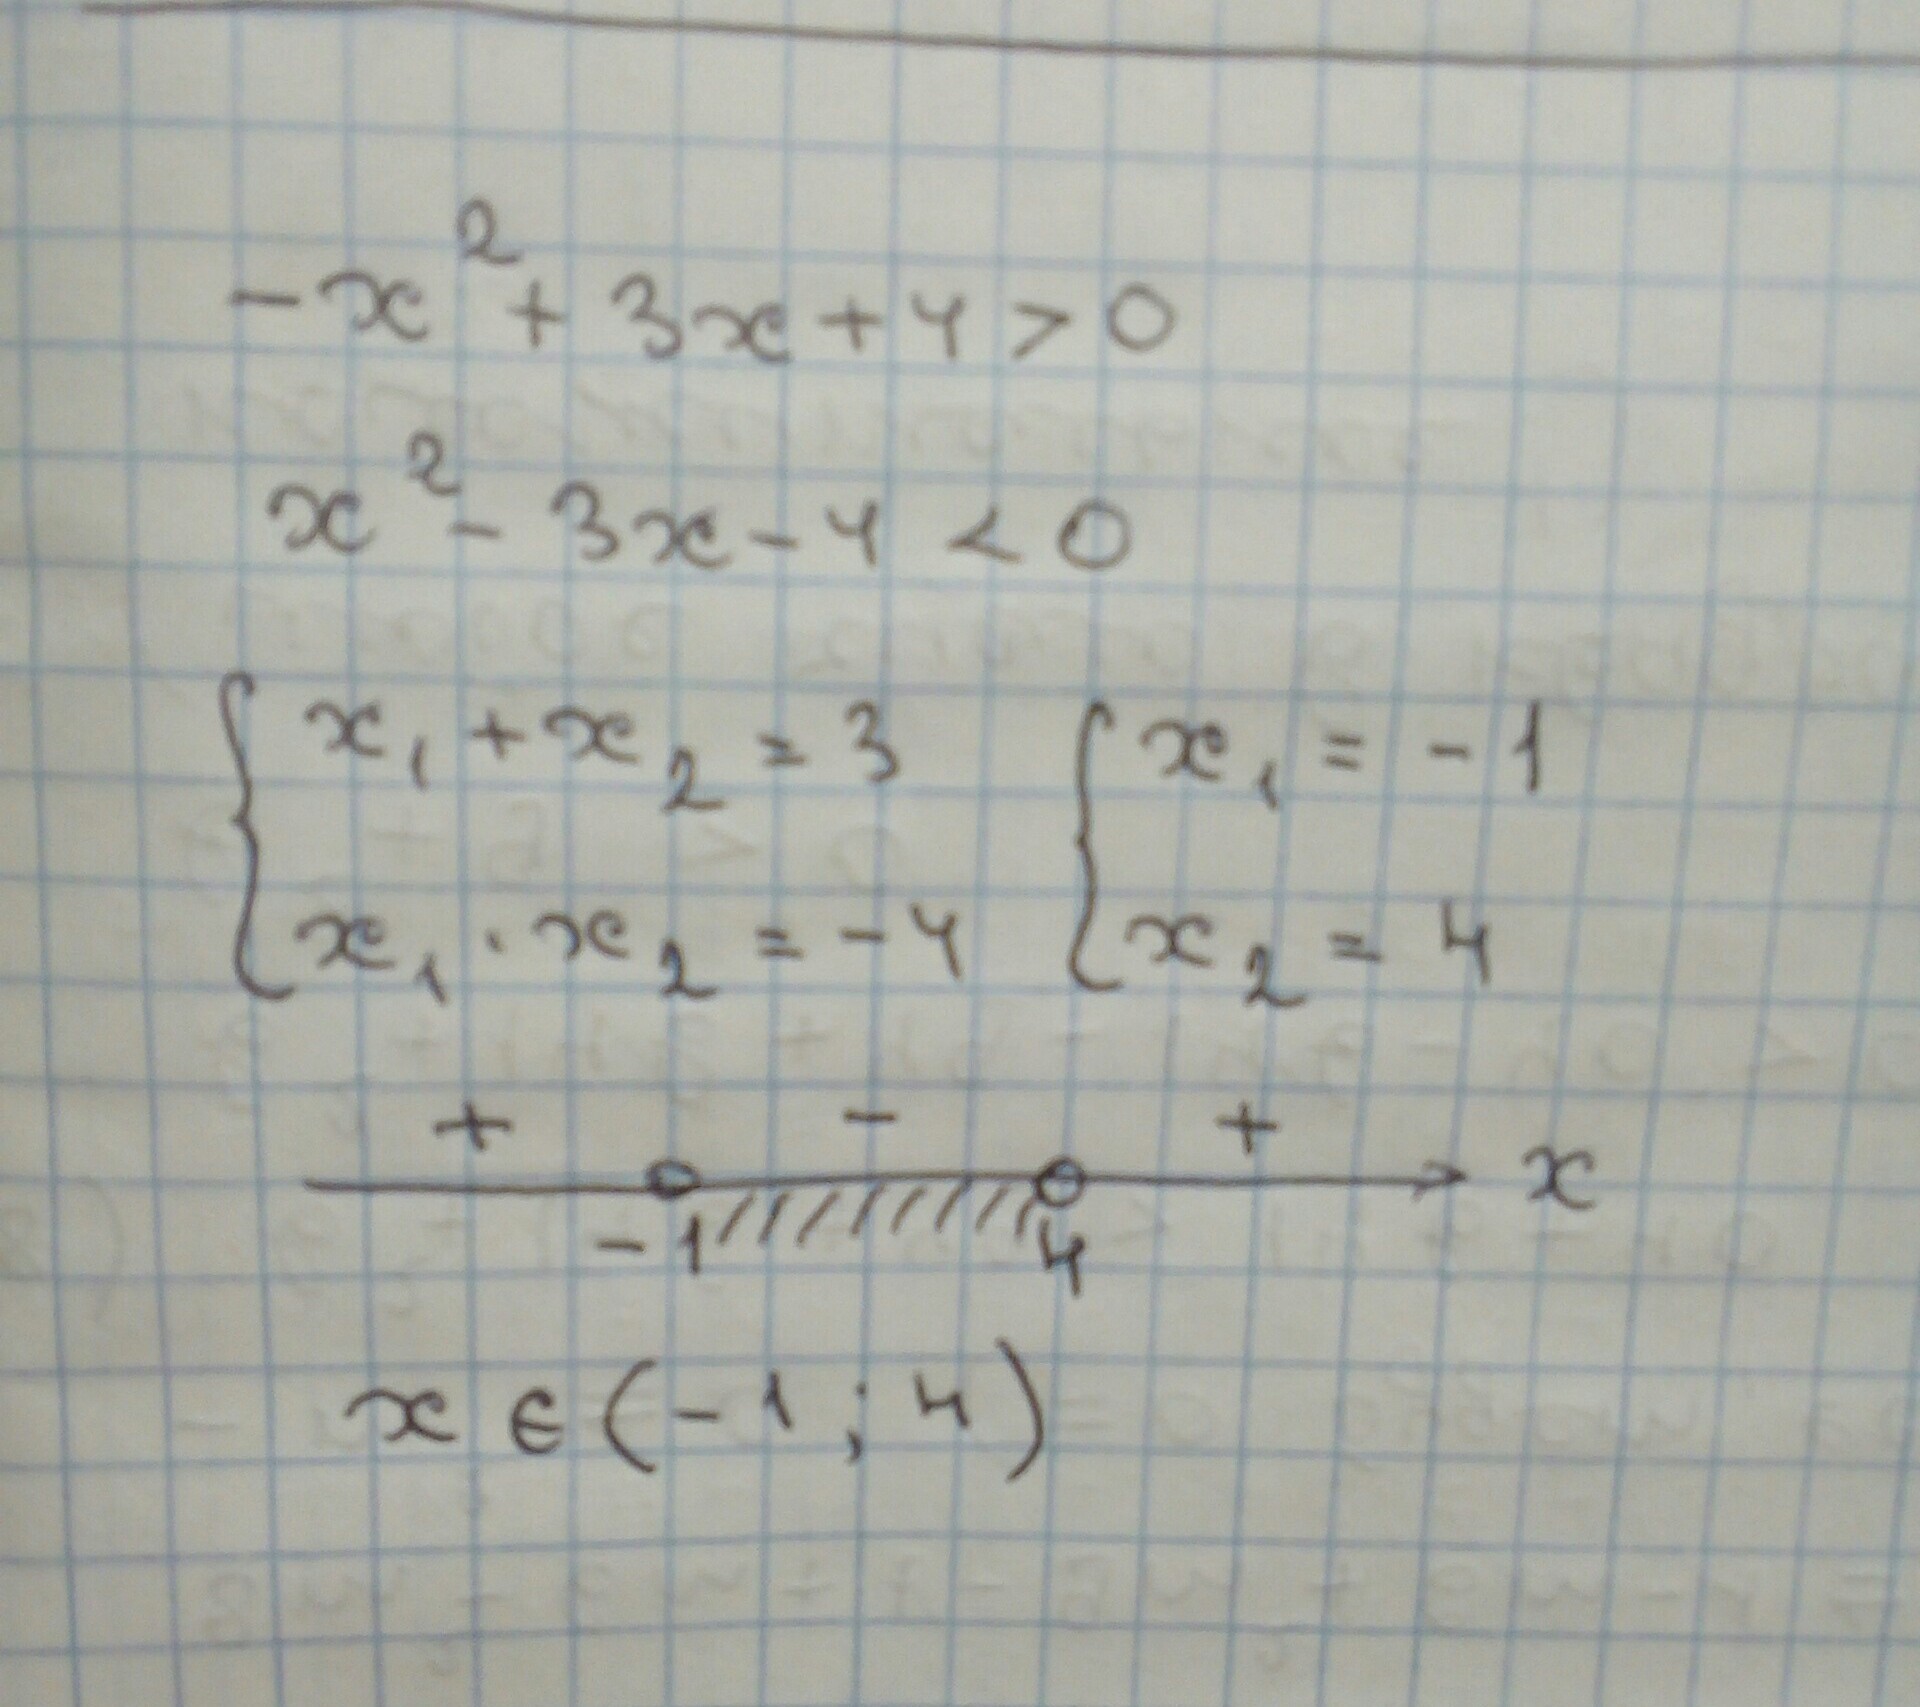 -x² + 3x + 4 > 0
x² - 3x - 4 < 0
{ x₁ + x₂ = 3 { x₁ = -1
{ x₁ · x₂ = -4 { x₂ = 4
+ - +
x
-1 4
x ∈ (-1; 4)